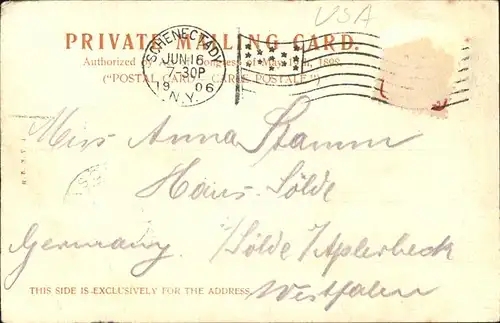 USA
PRIVATE MAILING CARD.
Authorized by Congress of May 19th, 1898.
("POSTAL CARD - CARTE POSTALE")
SCHENECTADY
JUN 16
7-30P
1906
N.Y.
Miss Anna Stamm
Haus-Sölde
Germany. /Sölde/Aplerbeck
THIS SIDE IS EXCLUSIVELY FOR THE ADDRESS.
Westfalen